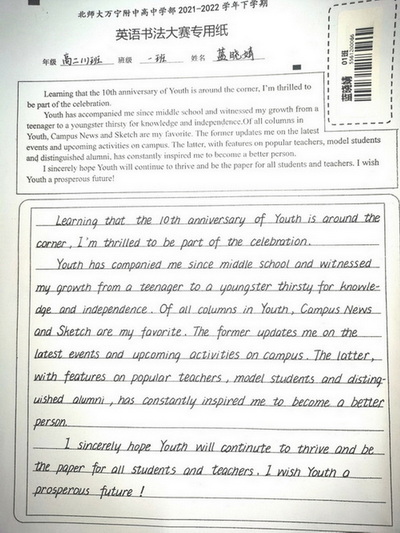 北师大万宁附中高中学部2021-2022学年下学期
英语书法大赛专用纸
年级 高二川班 班级 一班 姓名 蓝晓婧
01班
蓝晓婧
Learning that the 10th anniversary of Youth is around the corner, I'm thrilled to
be part of the celebration.
Youth has accompanied me since middle school and witnessed my growth from a
teenager to a youngster thirsty for knowledge and independence.Of all columns in
Youth, Campus News and Sketch are my favorite. The former updates me on the latest
events and upcoming activities on campus. The latter, with features on popular teachers, model students
and distinguished alumni, has constantly inspired me to become a better person.
I sincerely hope Youth will continue to thrive and be the paper for all students and teachers. I wish
Youth a prosperous future!
Learning that the 10th anniversary of Youth is around the
corner, I'm thrilled to be part of the celebration.
Youth has companied me since middle school and witnessed
my growth from a teenager to a youngster thirsty for knowle-
dge and independence. Of all columns in Youth, Campus News
and Sketch are my favorite. The former updates me on the
latest events and upcoming activities on campus. The latter,
with features on popular teachers, model students and disting-
uished alumni, has constantly inspired me to become a better
person.
I sincerely hope Youth will continue to thrive and be
the paper for all students and teachers. I wish Youth a
prosperous future!